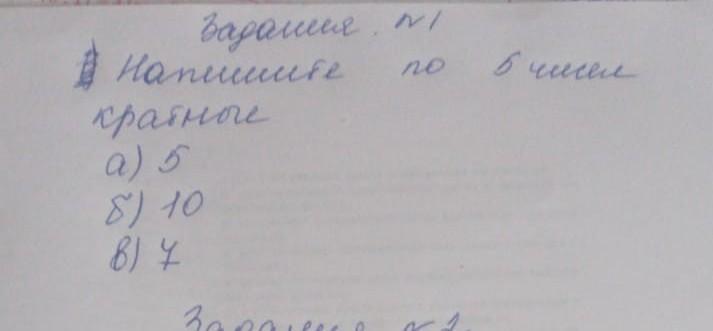 Задания. №1
Напишите по 5 чисел
кратные
а) 5
б) 10
в) 7
Задания №2